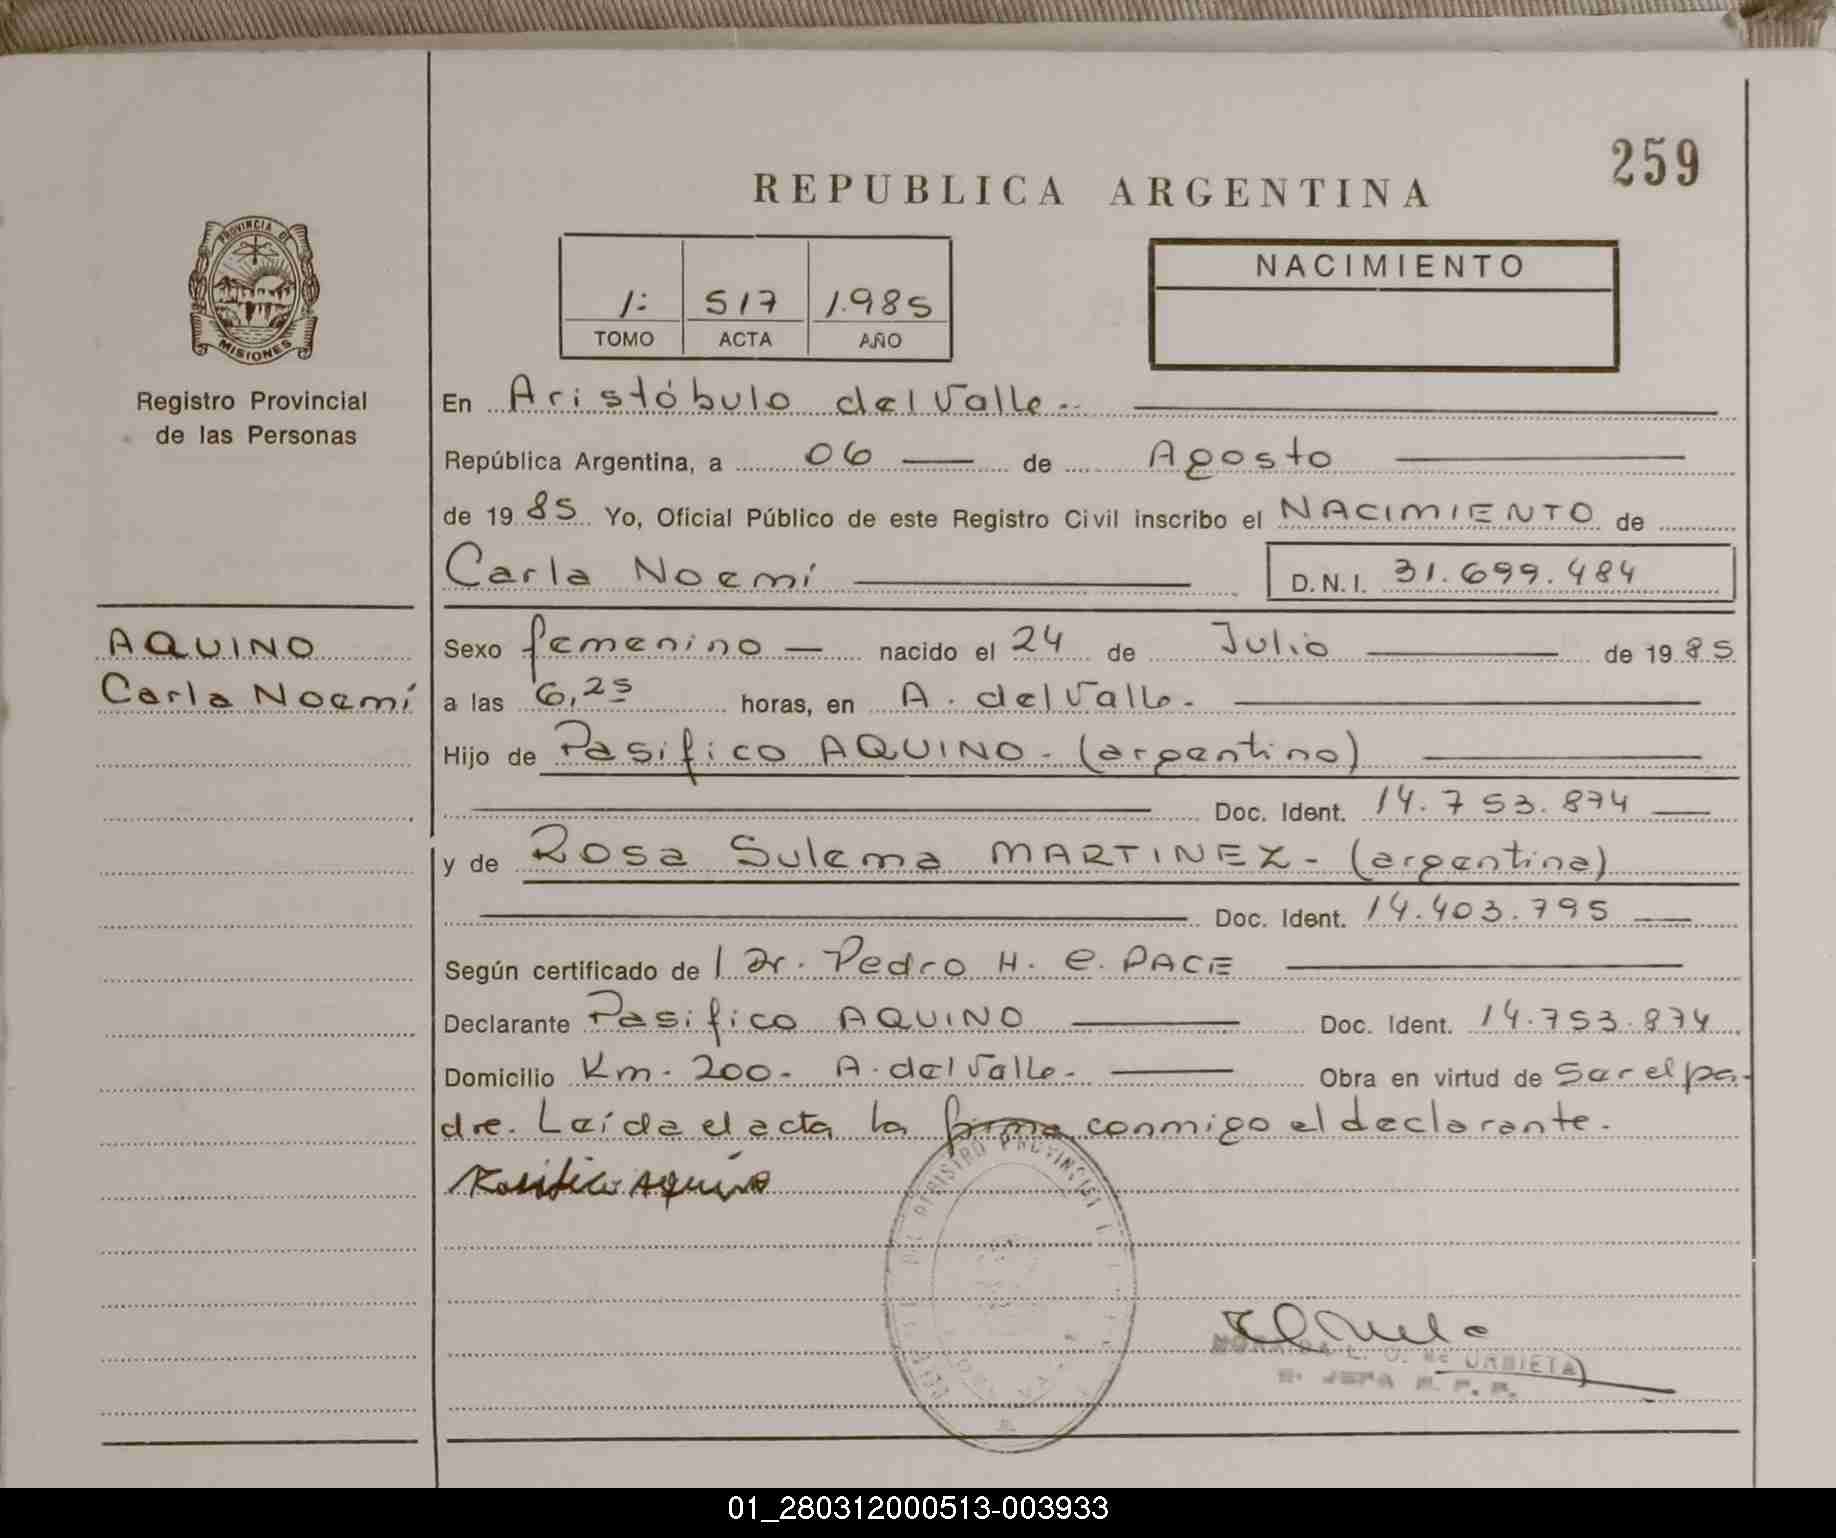 259
REPUBLICA ARGENTINA
PROVINCIA DE
MISIONES
Registro Provincial
de las Personas
1: 517 1.985
TOMO ACTA AÑO
NACIMIENTO
En Aristóbulo del Valle.-
República Argentina, a 06 de Agosto
de 1985 Yo, Oficial Público de este Registro Civil inscribo el NACIMIENTO de
Carla Noemí D.N.I. 31.699.484
AQUINO
Carla Noemí
Sexo femenino — nacido el 24 de Julio de 1985
a las 6,25 horas, en A. del Valle.
Hijo de Pasifico AQUINO - (argentino)
Doc. Ident. 14.753.874
y de Rosa Sulema MARTINEZ - (argentina)
Doc. Ident. 14.403.795
Según certificado de l Dr. Pedro H. C. PACE
Declarante Pasifico AQUINO Doc. Ident. 14.753.874
Domicilio Km. 200. A. del Valle. Obra en virtud de Ser el pa-
dre. Leída el acta la firma conmigo el declarante.
Pasifico Aquino
REGISTRO PROVINCIAL
L. O. de URBIETA
JEFA R. P. P.
01_280312000513-003933